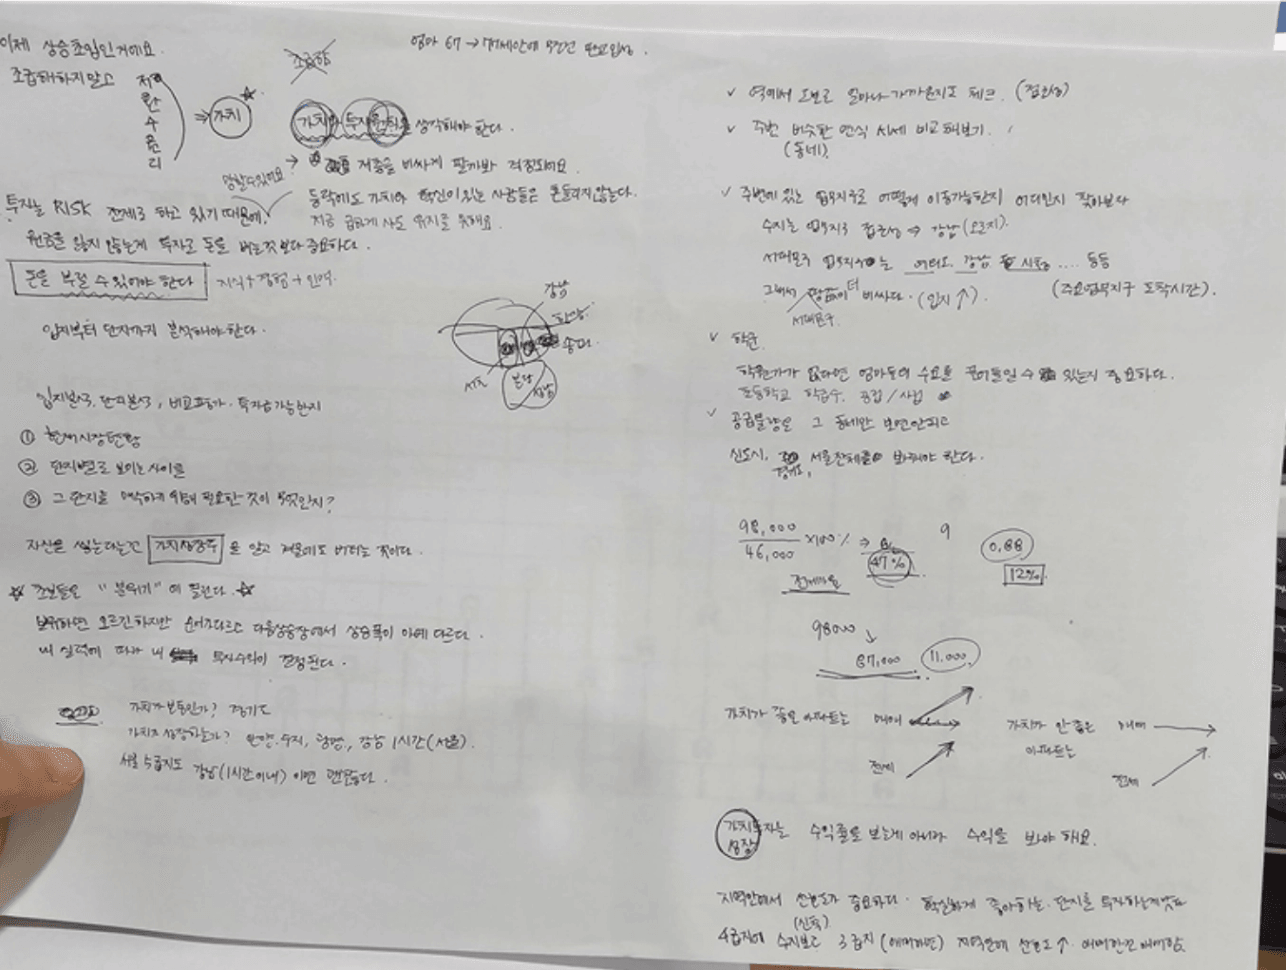 이제 상승초입인거에요.
조급해하지말고
저환수원리
⇒ 가치
조급함
엄마 67 →
가치와 투자원칙을 생각해야 한다.
→ 저층을 비싸게 팔까봐 걱정되어요.
망할수있어요
하락에도 가치와 확신이 있는 사람들은 흔들리지않는다.
지금 급하게 사도 유지를 못해요.
투자는 RISK 전제로 하고 있기 때문에,
원금을 잃지 않는게 투자로 돈을 버는것 보다 중요하다.
돈을 부릴 수 있어야 한다 지식 + 경험 + 인내
입지부터 단지까지 분석해야한다.
강남
송파
서초
분당
성남
입지분석, 단지분석, 비교평가, 투자금가능한지
① 현재시장현황
② 단지별로 보이는 사이클
③ 그 단지를 매수하기 위해 필요한 것이 무엇인지?
자산을 쌓는다는건 가치성장주 을 알고 겨울에도 버티는 것이다.
☆ 초보들은 "분위기"에 떨린다. ☆
보유하면 오르긴하지만 순서가다르고 다음상승장에서 상승폭이 아예 다르다.
내 실력에 따라 내 투자수익이 결정된다.
가치가 보통인가? 경기도
가치가 성장하는가? 안양.수지, 광명, 강남 1시간(서울).
서울 5급지도 강남(1시간이내)이면 괜찮다.
✓ 역에서 도보로 얼마나 가까운지도 체크. (접근성)
✓ 주변 비슷한 연식 시세 비교해보기.
(동네)
✓ 주변에 있는 업무지구로 어떻게 이동가능한지 어디인지 찾아보다
수지는 업무지구 접근성 → 강남(오로지)
서대문구 업무지구는 여의도, 강남, 시청 .... 등등
그래서 더 비싸다. (입지↑). (주요업무지구 도착시간).
서대문구
✓ 학군
학원가가 없다면 엄마들의 수요를 끌어들일 수 있는지 중요하다.
초등학교 학급수, 공립/사립
✓ 공급물량은 그 동네만 보면안되고
신도시, 서울전체를 봐줘야 한다.
경기도,
98,000
46,000
×100% ⇒ 47%
전세가율
9
0.88
12%
98000
↓
87,000 11,000
가치가 좋은 아파트는 매매
전세
가치가 안 좋은 매매
아파트는
전세
가치투자는 수익률을 보는게 아니라 수익을 봐야 해요.
성장
지역안에서 선호도가 중요하다. 확실하게 좋아하는 단지를 투자하는게맞다
(신축)
4급지에 수지보고 3급지 (애매하면) 지역안에 선호도↑